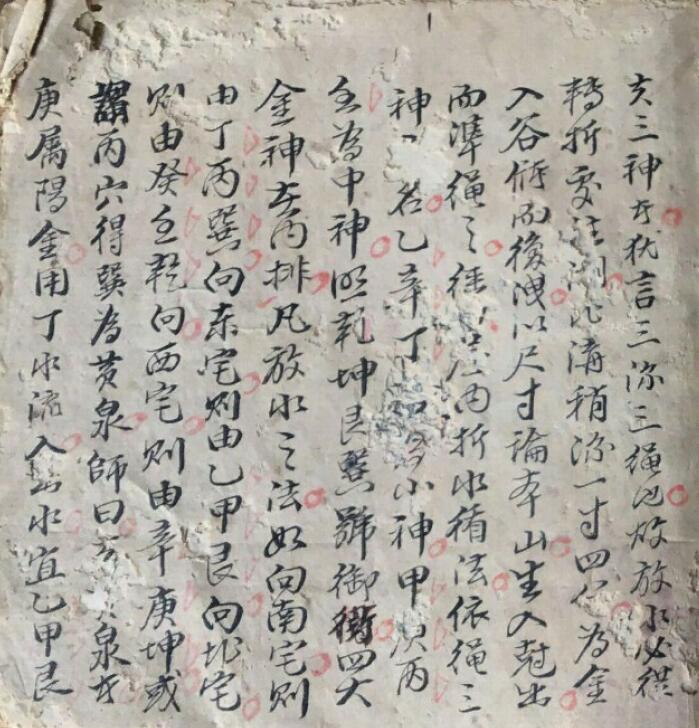 亥三神者犹言三弥三绳也故放水必從
轉折處注溝稍弥一寸四分為金
入谷然而後洩以尺寸論本山生入尅出
而準绳之内折水循法依绳三
神乙辛丁小神甲庚丙
壬為中神照乾坤艮巽號御街四大
金神左内排凡放水之法如向南宅则
由丁丙巽向东宅则由乙甲艮向北宅
则由癸壬乾向西宅则由辛庚坤或
謂丙穴得巽為黄泉師曰泉者
庚属陽金用丁水流入水宜乙甲艮